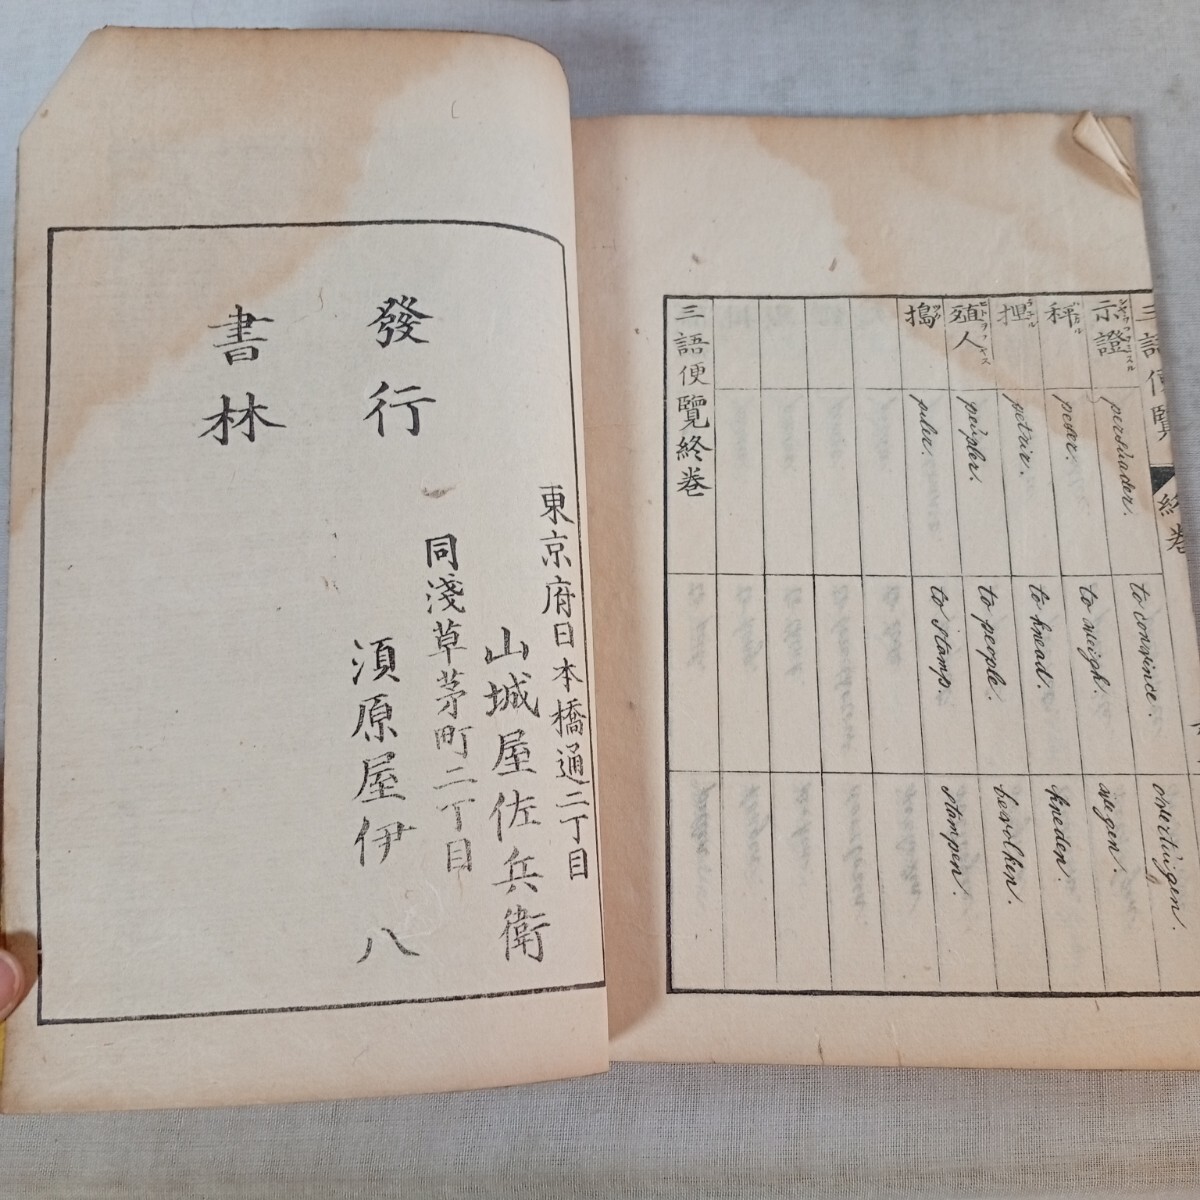 三語便覧 終巻
示證 persuader. to convince. overtuigen.
秤 peser. to weigh. wegen.
捏 petrir. to knead. kneden.
殖人 peupler. to people. bevolken.
搗 piler. to stamp. stampen.
三語便覽終巻
東京府日本橋通二丁目
山城屋佐兵衛
發行
同淺草茅町二丁目
須原屋伊八
書林